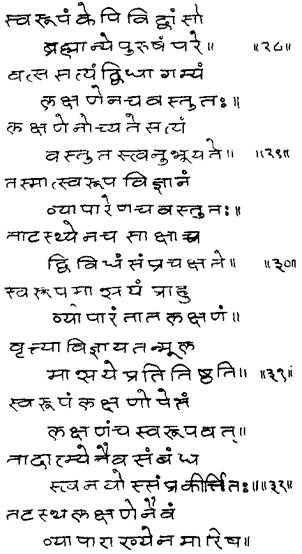 स्वरूपं केपि विद्वांसो
ब्रह्मान्ये पुरुषं परे॥ ॥२८॥
वत्स सत्यं द्विधा गम्यं
लक्षणेन च वस्तुतः॥
लक्षणेनोच्यते सत्यं
वस्तुतस्त्वनुभूयते॥ ॥२९॥
तस्मात्स्वरूप विज्ञानं
व्यापारेण च वस्तुतः॥
ताटस्थ्येन च साक्षाच्च
द्विविधं संप्रचक्षते॥ ॥३०॥
स्वरूपमाश्रयं प्राहु
र्व्यापारं तात लक्षणं॥
वृत्त्या विज्ञाय तन्मूल
माश्रये प्रतितिष्ठति॥३१॥
स्वरूपं लक्षणोपेतं
लक्षणं च स्वरूपवत्॥
तादात्म्येनैव संबंध
स्त्वनयोस्संप्रकीर्त्तितः॥३२॥
तटस्थ लक्षणेनैवं
व्यापाराख्येन मारिष॥